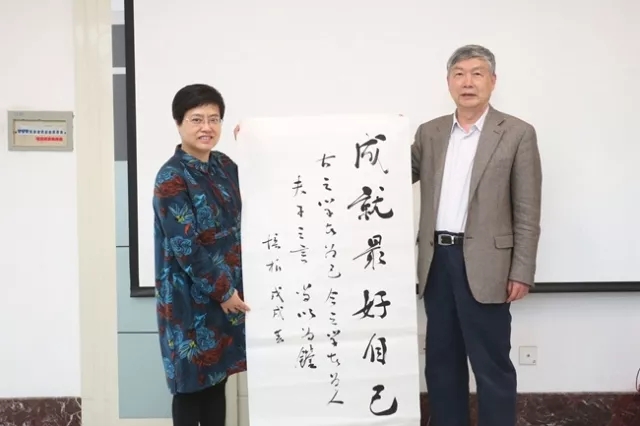 成就最好自己
古之学者为己今之学者为人
夫子之言当以为鑑
戊戌